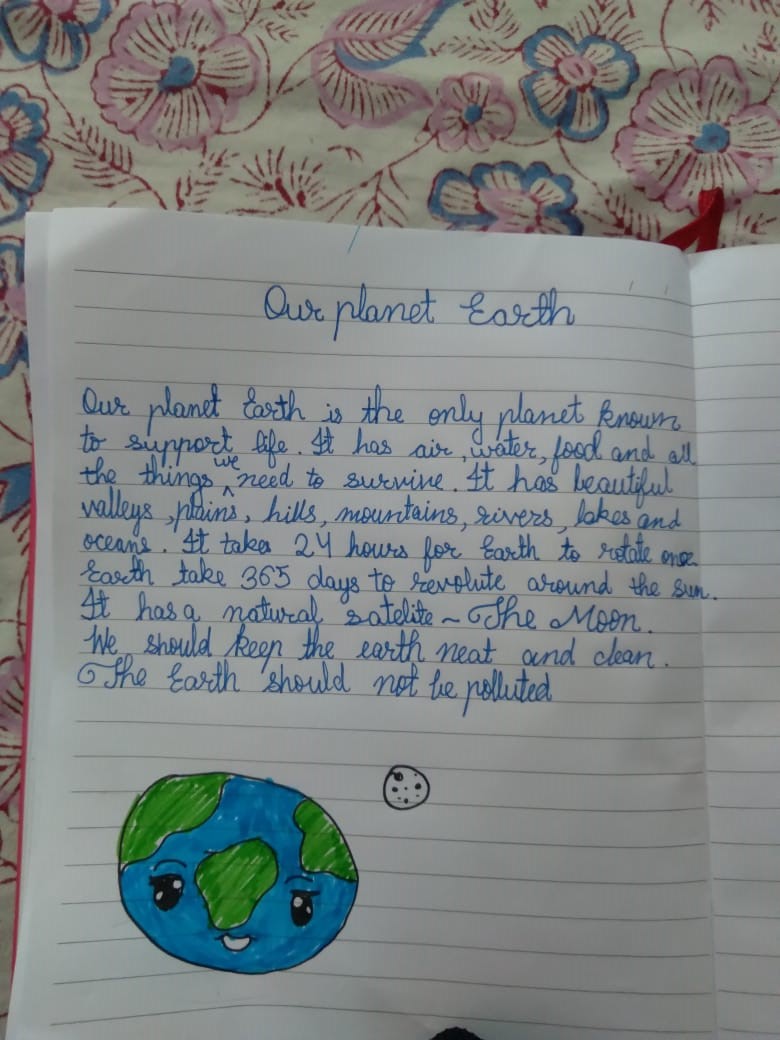 Our planet Earth
Our planet Earth is the only planet known
to support life. It has air, water, food and all
the things we need to survive. It has beautiful
valleys, plains, hills, mountains, rivers, lakes and
oceans. It takes 24 hours for Earth to rotate once
Earth take 365 days to revolute around the sun.
It has a natural satelite ~ The Moon.
We should keep the earth neat and clean.
The Earth should not be polluted